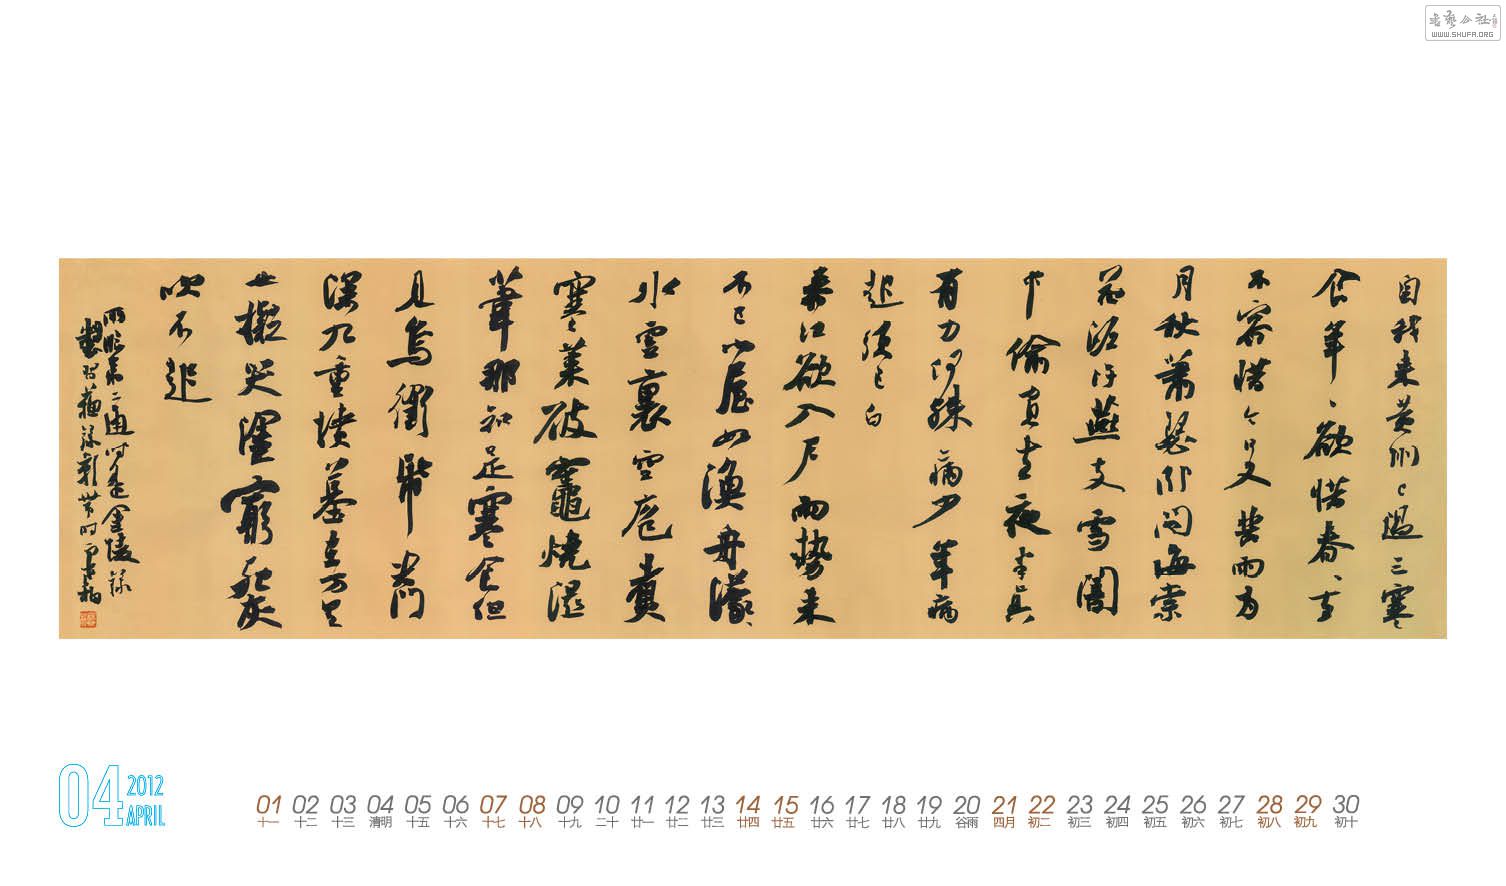 自我来黄州已过三寒
食年々欲惜春々去
不容惜今年又苦雨两
月秋萧瑟卧闻海棠
花泥汙燕支雪闇
中偷負去夜半真
有力何殊病少年病
起頭已白
春江欲入户雨势来
不已小屋如渔舟濛々
水雲裏空庖煮
寒菜破竈烧湿
葦那知是寒食但
見烏銜帋君門
深九重墳墓在万里
也擬哭塗窮死灰
吹不起
書藝公社
WWW.SHUFA.ORG
04
2012
APRIL
01 02 03 04 05 06 07 08 09 10 11 12 13 14 15 16 17 18 19 20 21 22 23 24 25 26 27 28 29 30
十一 十二 十三 清明 十五 十六 十七 十八 十九 二十 廿一 廿二 廿三 廿四 廿五 廿六 廿七 廿八 廿九 谷雨 四月 初二 初三 初四 初五 初六 初七 初八 初九 初十